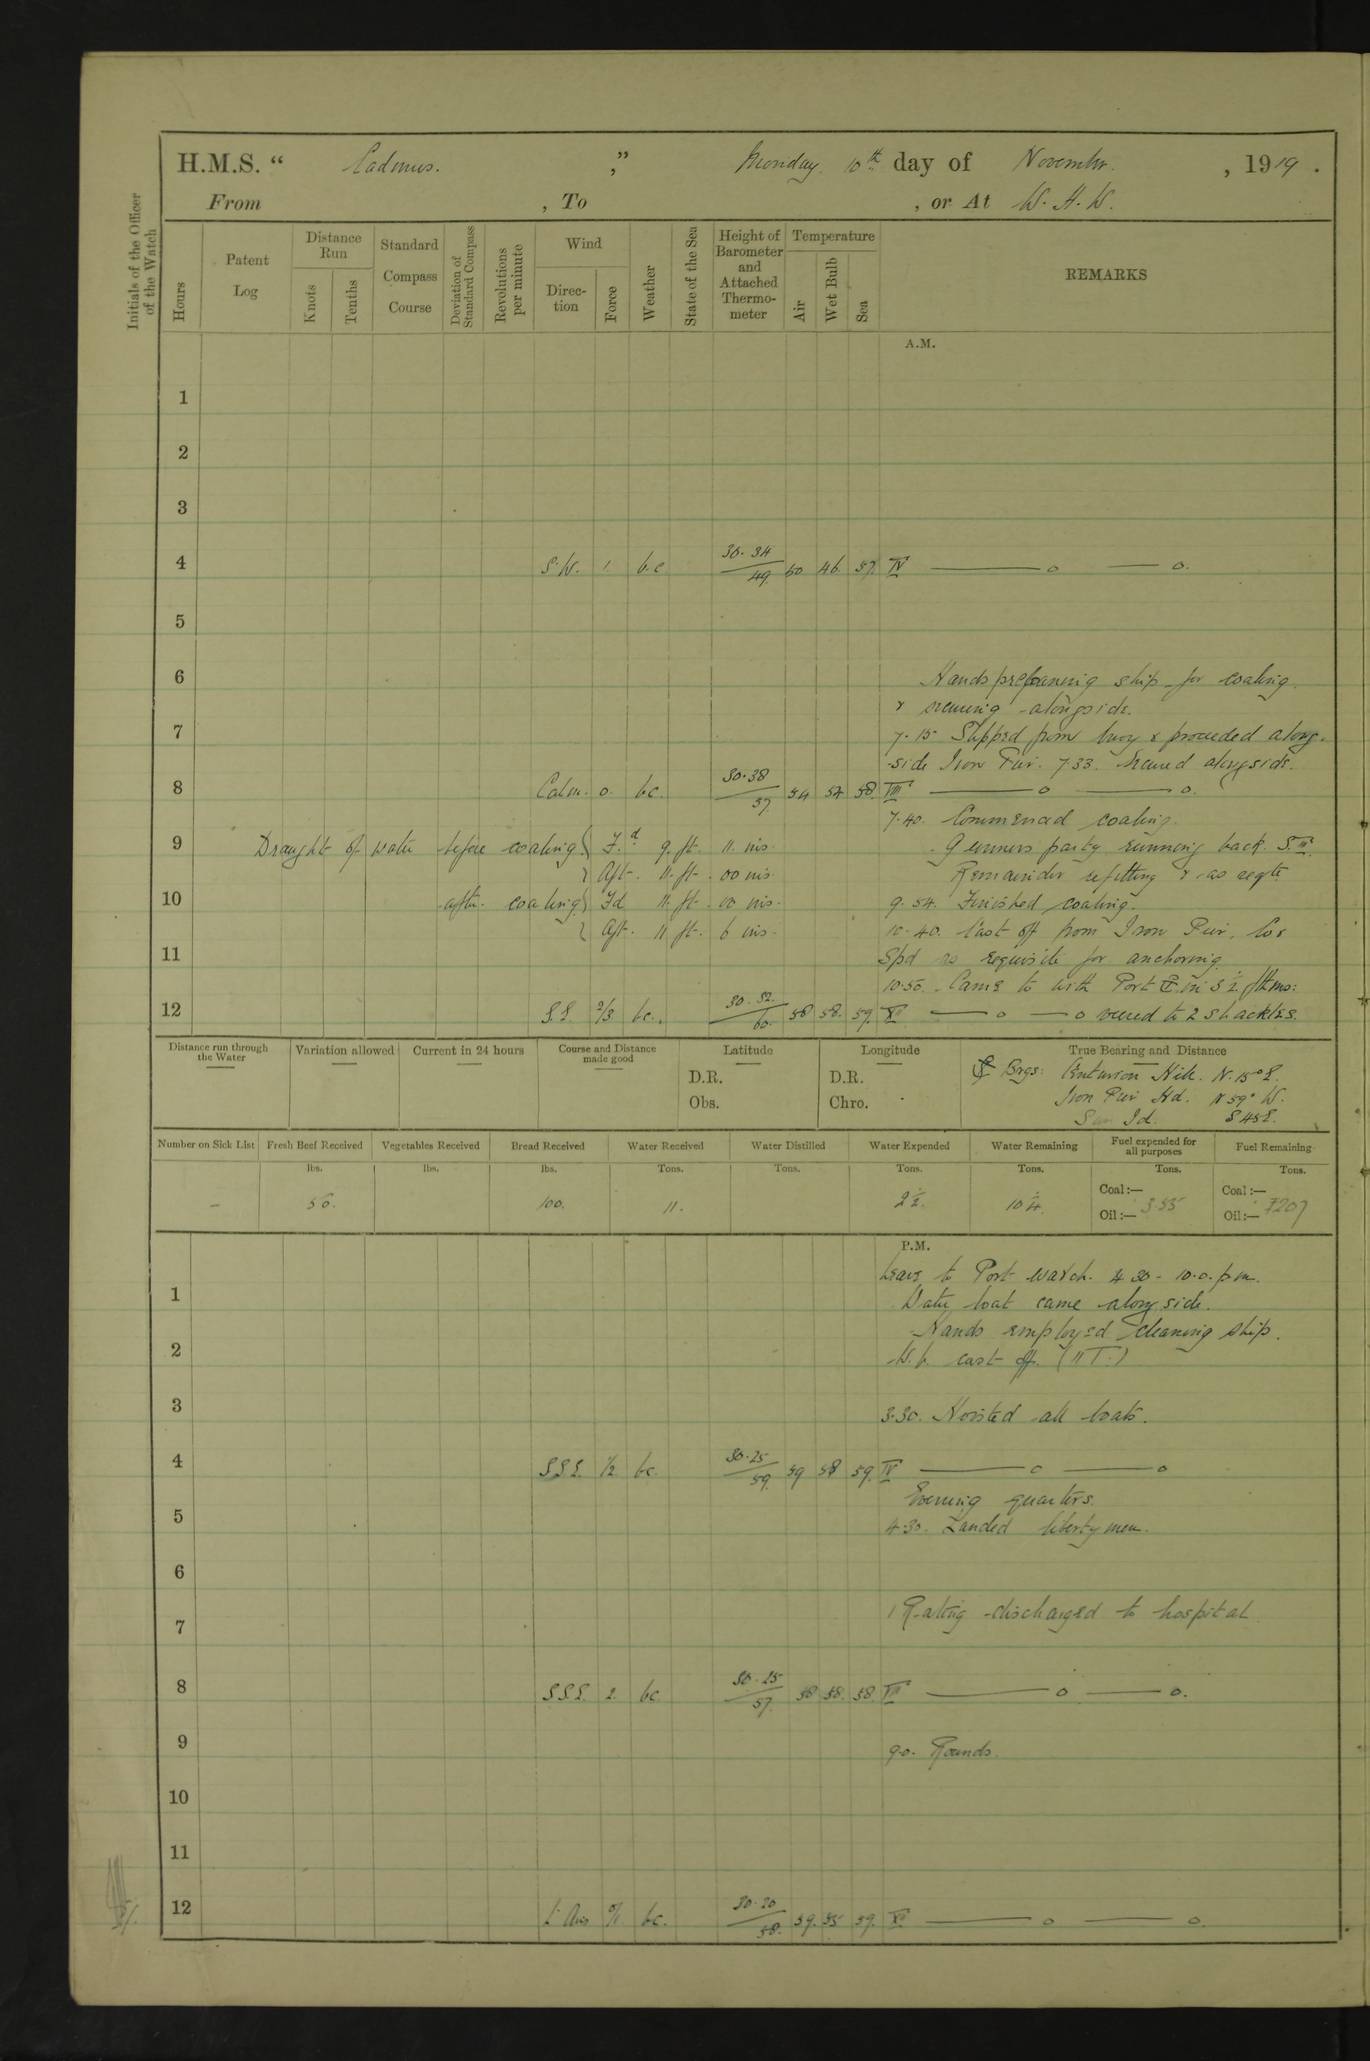 H.M.S. “ Cadmus. ,” Monday. 10th day of November. , 1919 .
From , To , or At W. H. W.
Initials of the Officer of the Watch
Hours
Patent Log
Distance Run
Knots
Tenths
Standard Compass Course
Deviation of Standard Compass
Revolutions per minute
Wind
Direc-tion
Force
Weather
State of the Sea
Height of Barometer and Attached Thermo-meter
Temperature
Air
Wet Bulb
Sea
REMARKS
A.M.
1
2
3
4 S.W. 1. b.c 30.34 / 49. 50 46 57. IV —— o —— o.
5
6 Hands preparing ship for coaling
& securing alongside.
7 7.15 Slipped from buoy & proceeded along-
side Iron Pier. 7.33. Secured alongside.
8 Calm. 0. bc. 30.38 / 57 54 52 58. VIII —— o —— o.
7.40. Commenced coaling.
9 Draught of water before coaling { F.d 9. ft. 11. ins. Gunners party running back S.III.
Aft. 11. ft. 00 ins. Remainder refitting & as reqte
10 after coaling { Fd 11. ft. 00 ins. 9.54. Finished coaling.
Aft. 11 ft. 6 ins. 10.40. Cast off from Iron Pier, Co &
11 Spd as requisite for anchoring.
10.50. Came to with Port in 5½ fthms:
12 S.E. 2/3 bc. 30.32. / 60. 58 58. 59. XII —— o —— o veered to 2 shackles.
Distance run through the Water
Variation allowed
Current in 24 hours
Course and Distance made good
Latitude
D.R.
Obs.
Longitude
D.R.
Chro.
True Bearing and Distance
Brgs: Centurion Hill. N.15°E.
Iron Pier Hd. N 59° W.
Id. S 45E.
Number on Sick List
Fresh Beef Received
Vegetables Received
Bread Received
Water Received
Water Distilled
Water Expended
Water Remaining
Fuel expended for all purposes
Fuel Remaining
lbs. lbs. lbs. Tons. Tons. Tons. Tons. Tons. Tons.
– 56. 100. 11. 2½. 10¼. Coal :— Oil :— 3.55 Coal :— Oil :— 207
P.M.
Leave to Port watch. 4.30 - 10.0. pm.
1 Water boat came alongside.
Hands employed cleaning ship.
2 W.b. cast off. (11 T.)
3 3.30. Hoisted all boats.
4 SSE. 1/2 bc. 30.25 / 59. 59 58 59. IV —— o —— o
Evening quarters.
5 4.30. Landed liberty men.
6
7 1 Rating discharged to hospital.
8 SSE. 2. bc 30.25 / 57. 58 58. 58 VIII —— o —— o.
9 9.0. Rounds.
10
11
12 L. Airs 0/1 bc. 30.20 / 58. 59. 55 59. XII —— o —— o.